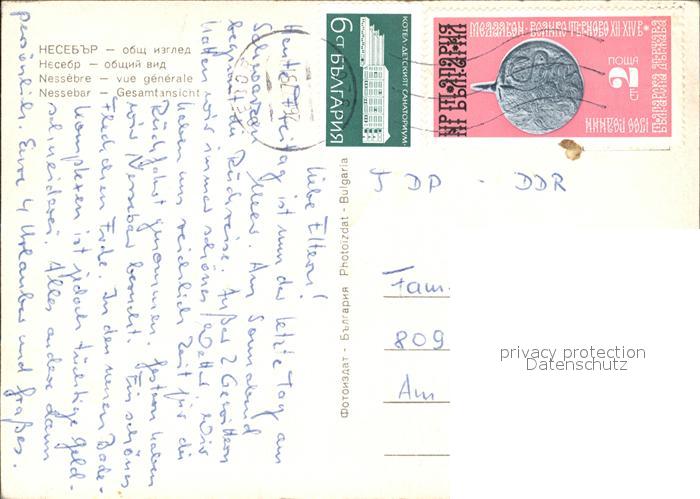 НЕСЕБЪР — общ изглед
Несебр — общий вид
Nessèbre — vue générale
Nessebar — Gesamtansicht
6 ст БЪЛГАРИЯ
КОТЕЛ-ДЕТСКИЯТ САНАТОРИУМ
НР БЪЛГАРИЯ
МЕДАЛЬОН · ВЕЛИКО ТЪРНОВО XII-XIV В.
ПОЩА
2 СТ
1300 ГОДИНИ
БЪЛГАРСКА ДЪРЖАВА
Фотоиздат - България Photoizdat - Bulgaria
DDR
Fam.
809
Am
privacy protection
Datenschutz
Liebe Eltern!
Heute Freitag ist nun der letzte Tag am
Schwarzen Meer. Am Sonnabend
beginnt die Rückreise. Außer 2 Gewittern
hatten wir immer schönes Wetter. Wir
haben uns reichlich Zeit für die
Rückfahrt genommen. Gestern haben
wir Nessebar besucht. Ein schönes
Fleckchen Erde. In den neuen Bade-
komplexen ist jedoch tüchtige Geld-
schneiderei. Alles andere dann
persönlich. Eure 4 Urlauber und